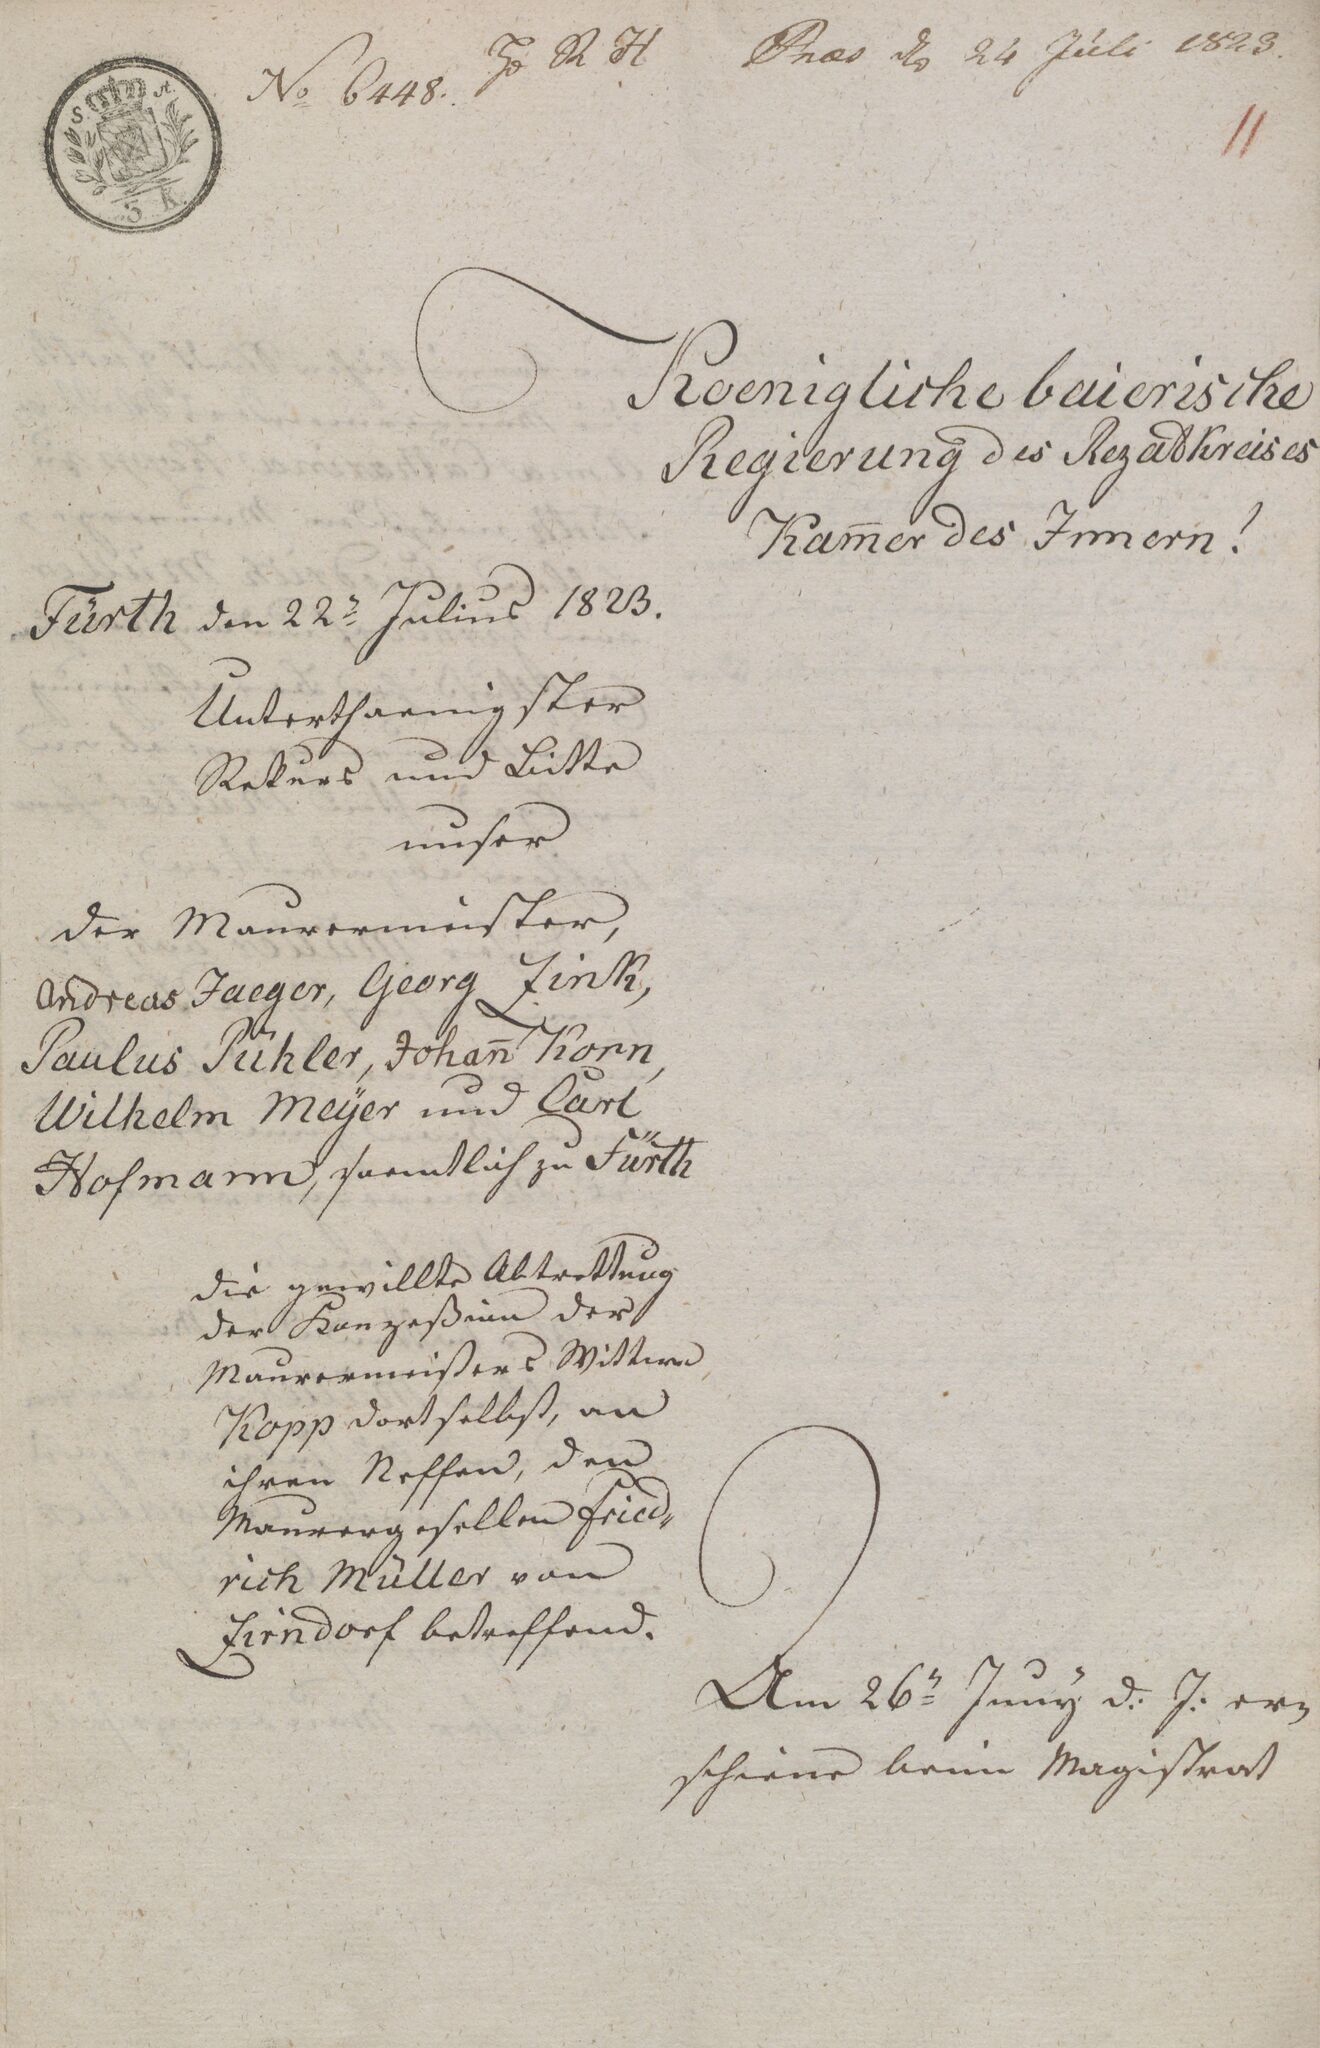 No 6448.
R H
Praes d 24 Juli 1823.
11
S. A.
3 K.
Koenigliche baierische
Regierung des Rezatkreises
Kam̅er des Innern!
Fürth den 22n Julius 1823.
Unterthaenigster
Rekurs und Bitte
unser
der Maurermeister,
Andreas Jaeger, Georg Zink,
Paulus Pühler, Johan̅ Korn,
Wilhelm Meÿer und Carl
Hofmann, saemtlich zu Fürth
die gewillte Abtrettung
der Konzeßion der
Maurermeisters Wittwe
Kopp dortselbst, an
ihren Neffen, den
Maurergesellen Fried-
rich Müller von
Zirndorf betreffend.
Am 26n Juny d: J: er-
schiene beim Magistrat